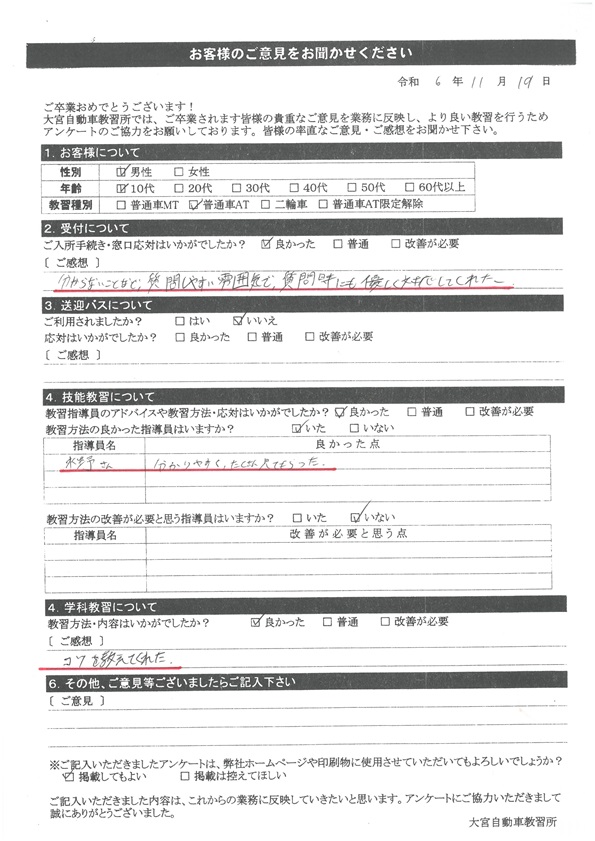 お客様のご意見をお聞かせください
令和 6 年 11 月 19 日
ご卒業おめでとうございます！
大宮自動車教習所では、ご卒業されます皆様の貴重なご意見を業務に反映し、より良い教習を行うため
アンケートのご協力をお願いしております。皆様の率直なご意見・ご感想をお聞かせ下さい。
1. お客様について
性別 ☑男性 □女性
年齢 ☑10代 □20代 □30代 □40代 □50代 □60代以上
教習種別 □普通車MT ☑普通車AT □二輪車 □普通車AT限定解除
2. 受付について
ご入所手続き・窓口応対はいかがでしたか？ ☑良かった □普通 □改善が必要
〔 ご感想 〕
分からないことなど、質問しやすい雰囲気で、質問時にも優しく対応してくれた
3. 送迎バスについて
ご利用されましたか？ □はい ☑いいえ
応対はいかがでしたか？ □良かった □普通 □改善が必要
〔 ご感想 〕
4. 技能教習について
教習指導員のアドバイスや教習方法・応対はいかがでしたか？ ☑良かった □普通 □改善が必要
教習方法の良かった指導員はいますか？ ☑いた □いない
指導員名 良かった点
さん 分かりやすく、たくさん
教習方法の改善が必要と思う指導員はいますか？ □いた ☑いない
指導員名 改善が必要と思う点
4. 学科教習について
教習方法・内容はいかがでしたか？ ☑良かった □普通 □改善が必要
〔 ご感想 〕
コツを教えてくれた.
6. その他、ご意見等ございましたらご記入下さい
〔 ご意見 〕
※ご記入いただきましたアンケートは、弊社ホームページや印刷物に使用させていただいてもよろしいでしょうか？
☑掲載してもよい □掲載は控えてほしい
ご記入いただきました内容は、これからの業務に反映していきたいと思います。アンケートにご協力いただきまして
誠にありがとうございました。
大宮自動車教習所